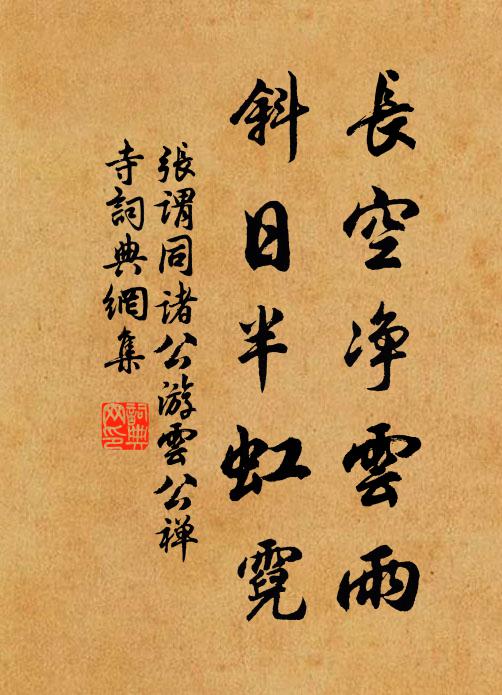 長空净雲雨
斜日半虹霓
張謂同諸公游雲公禅
寺詞典網集
詞典
网印